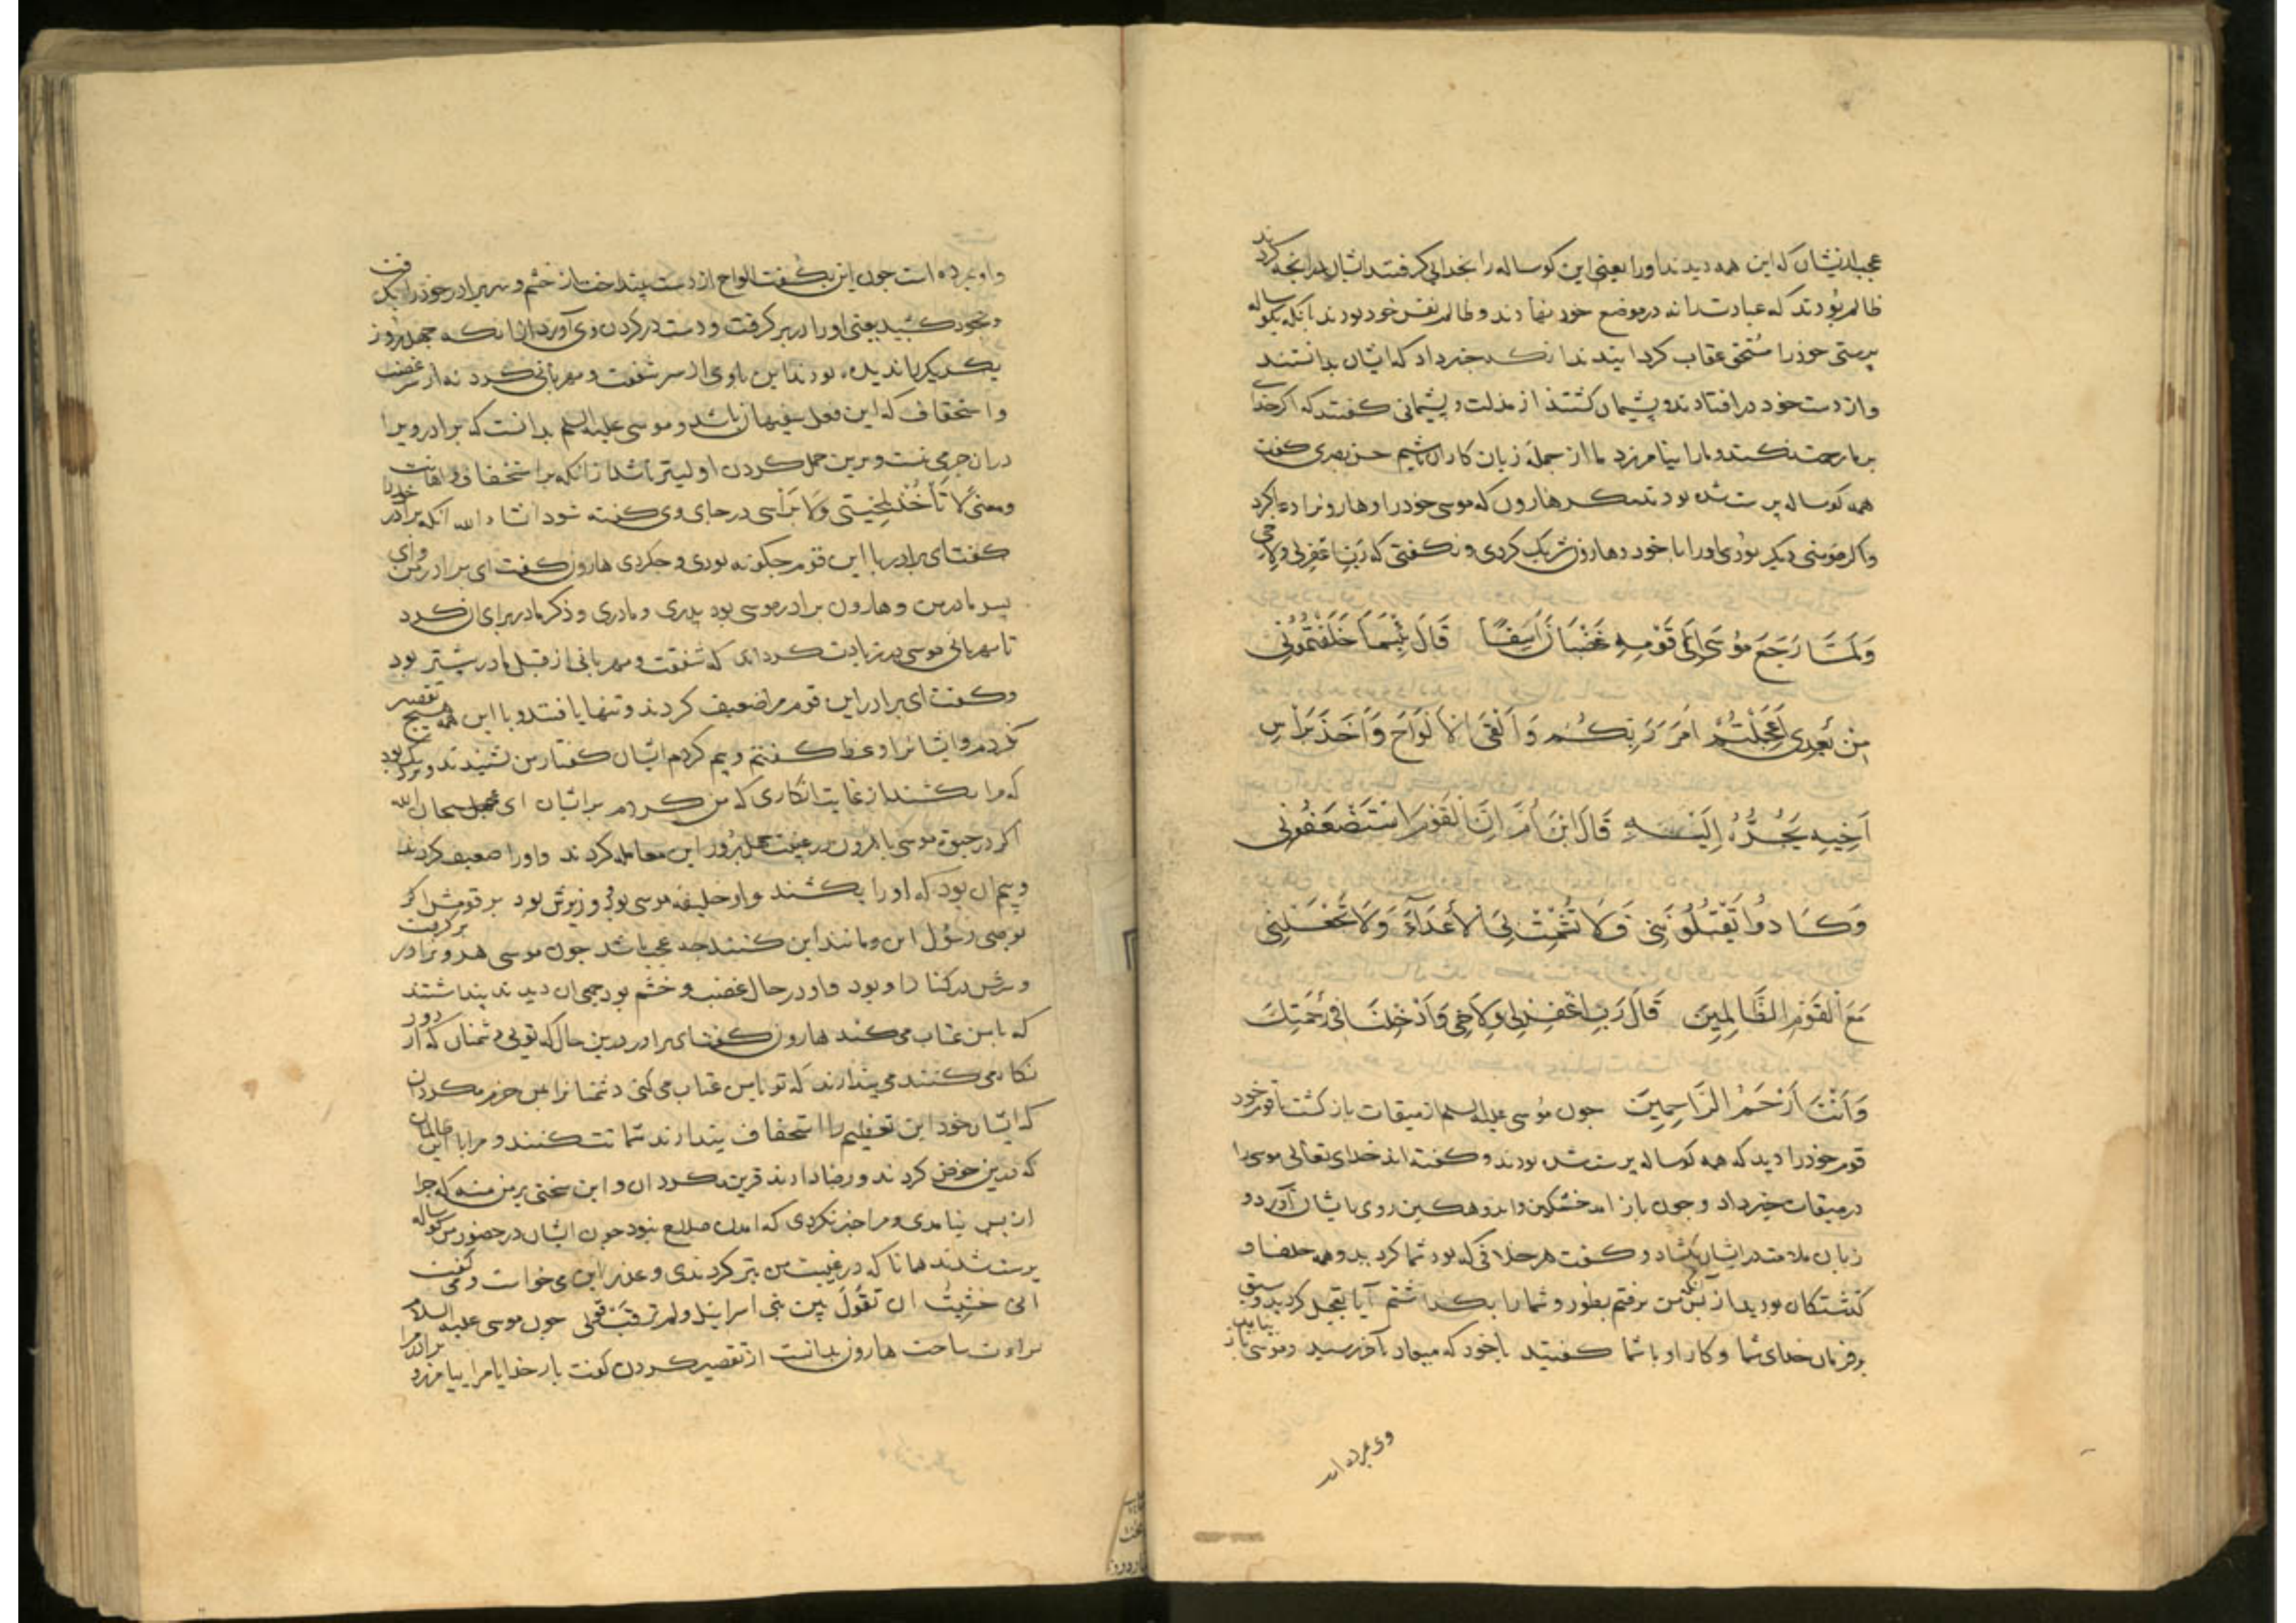 عجب ازیشان که این همه دیدند او را یعنی این کوساله را بخدایی کرفتند ایشان بدانچه کردند
ظالم بودند که عبادت را نه در موضع خود نهادند و ظالم نفس خود بودند آنکه بکوساله
پرستی خود را مستحق عقاب کردانیدند آنکه خبر داد که ایشان بدانستند
و از دست خود در افتادند و پشیمان کشتند از مذلت و پشیمانی کفتند که اکر خدای
بر ما رحمت نکند و ما را نیامرزد ما از جمله زیان کاران باشیم حسن بصری کفت
همه کوساله پرست شده بودند مکر هارون که موسی خود را و هارون را دعا کرد
و اکر مومنی دیکر بودی او را با خود و هارون شریک کردی و نکفتی که رب اغفرلی ولاخی
وَلَمَّا رَجَعَ مُوسَىٰ إِلَىٰ قَوْمِهِ غَضْبَانَ أَسِفًا قَالَ بِئْسَمَا خَلَفْتُمُونِی
مِنْ بَعْدِی أَعَجِلْتُمْ أَمْرَ رَبِّكُمْ وَأَلْقَى الْأَلْوَاحَ وَأَخَذَ بِرَأْسِ
أَخِیهِ یَجُرُّهُ إِلَیْهِ قَالَ ابْنَ أُمَّ إِنَّ الْقَوْمَ اسْتَضْعَفُونِی
وَكَادُوا یَقْتُلُونَنِی فَلَا تُشْمِتْ بِیَ الْأَعْدَاءَ وَلَا تَجْعَلْنِی
مَعَ الْقَوْمِ الظَّالِمِینَ قَالَ رَبِّ اغْفِرْلِی وَلِأَخِی وَأَدْخِلْنَا فِی رَحْمَتِكَ
وَأَنْتَ أَرْحَمُ الرَّاحِمِینَ چون موسی علیه السلم از میقات باز کشت با قوم خود
قوم خود را دید که همه کوساله پرست شده بودند و کفته اند خدای تعالی موسی را
در میقات خبر داد و چون باز امد خشمکین و اندوهکین روی با یشان آورد و
زبان ملامت در ایشان بکشاد و کفت هر خلافی که بود شما کردید و همه خلفا و
کذشتکان بودید از پس من برفتم بطور و شما را بکذاشتم آیا تعجیل کردید و سبق
بر فرمان خدای شما و کار او با شما کفتید با خود که میعاد باخر رسید و موسی باز نیامد
وی مرده است
و او مرده است چون این بکفت الواح از دست بینداخت از خشم و سر برادر خود را بکرفت
و بخود کشید یعنی او را در بر کرفت و دست در کردن وی آورد از انکه چهل روز
یکدیکر را ندیده بودند این با وی از سر شفقت و مهربانی کرد نه از سر غضب
و استخفاف که این فعل سفیهان باشد و موسی علیه السلم بدانست که برادر ویرا
دران جرمی نیست و برین حمل کردن اولیتر باشد از انکه بر استخفاف و اهانت
و معنی لا تأخذ بلحیتی ولا برأسی در جای وی کفته شود انشاء الله آنکه برادر خود را
کفت ای برادر با این قوم چکونه بودی و چکردی هارون کفت ای برادر من وای
پسر مادر من و هارون برادر موسی بود پدری و مادری و ذکر مادر برای ان کرد
تا مهربانی موسی بر زیادت کرداند که شفقت و مهربانی از قبل مادر بیشتر بود
و کفت ای برادر این قوم مرا ضعیف کردند و تنها یافتند و با این همه هیچ تقصیر
نکردم و ایشانرا وعظ کفتم و بیم کردم ایشان کفتار من نشنیدند و نزدیک بود
که مرا بکشند از غایت انکاری که من کردم بر ایشان ای سبحان الله
اکر در حیوة موسی با هرون در غیبت چهل روز این معامله کردند و او را ضعیف کردند
و بیم ان بود که او را بکشند و او خلیفه موسی بود و وزیرش بود بر قومش اکر
بوصی رسول این و مانند این کنند چه عجب باشد چون موسی سر برادر بر کرفت
و سرش در کنار او بود و او در حال غضب و خشم بود جمعی ان دیدند پنداشتند
که با من عتاب می کند هارون کفت ای برادر درین حال که تویی دشمنان که از دور
نکاه می کنند می پندارند که تو با من عتاب می کنی دشمنانرا بمن خرم مکردان
که ایشان خود این تعظیم را استخفاف پندارند شماتت کنند و مرا با این ظالمان
که درین خوض کردند و رضا دادند قرین مکردان و این سختی بر من منه که چرا
از پس نیامدی و مرا خبر نکردی که امدن صلاح نبود چون ایشان در حضور من کوساله
پرست شدند همانا که در غیبت من بتر کردندی و عذر این می خواست و می کفت
انی خشیت ان تقول بین بنی اسرائیل ولم ترقب قولی چون موسی علیه السلام
براءت ساحت هارون بدانست از تقصیر کردن کفت بار خدایا مرا بیامرز و برادرم را